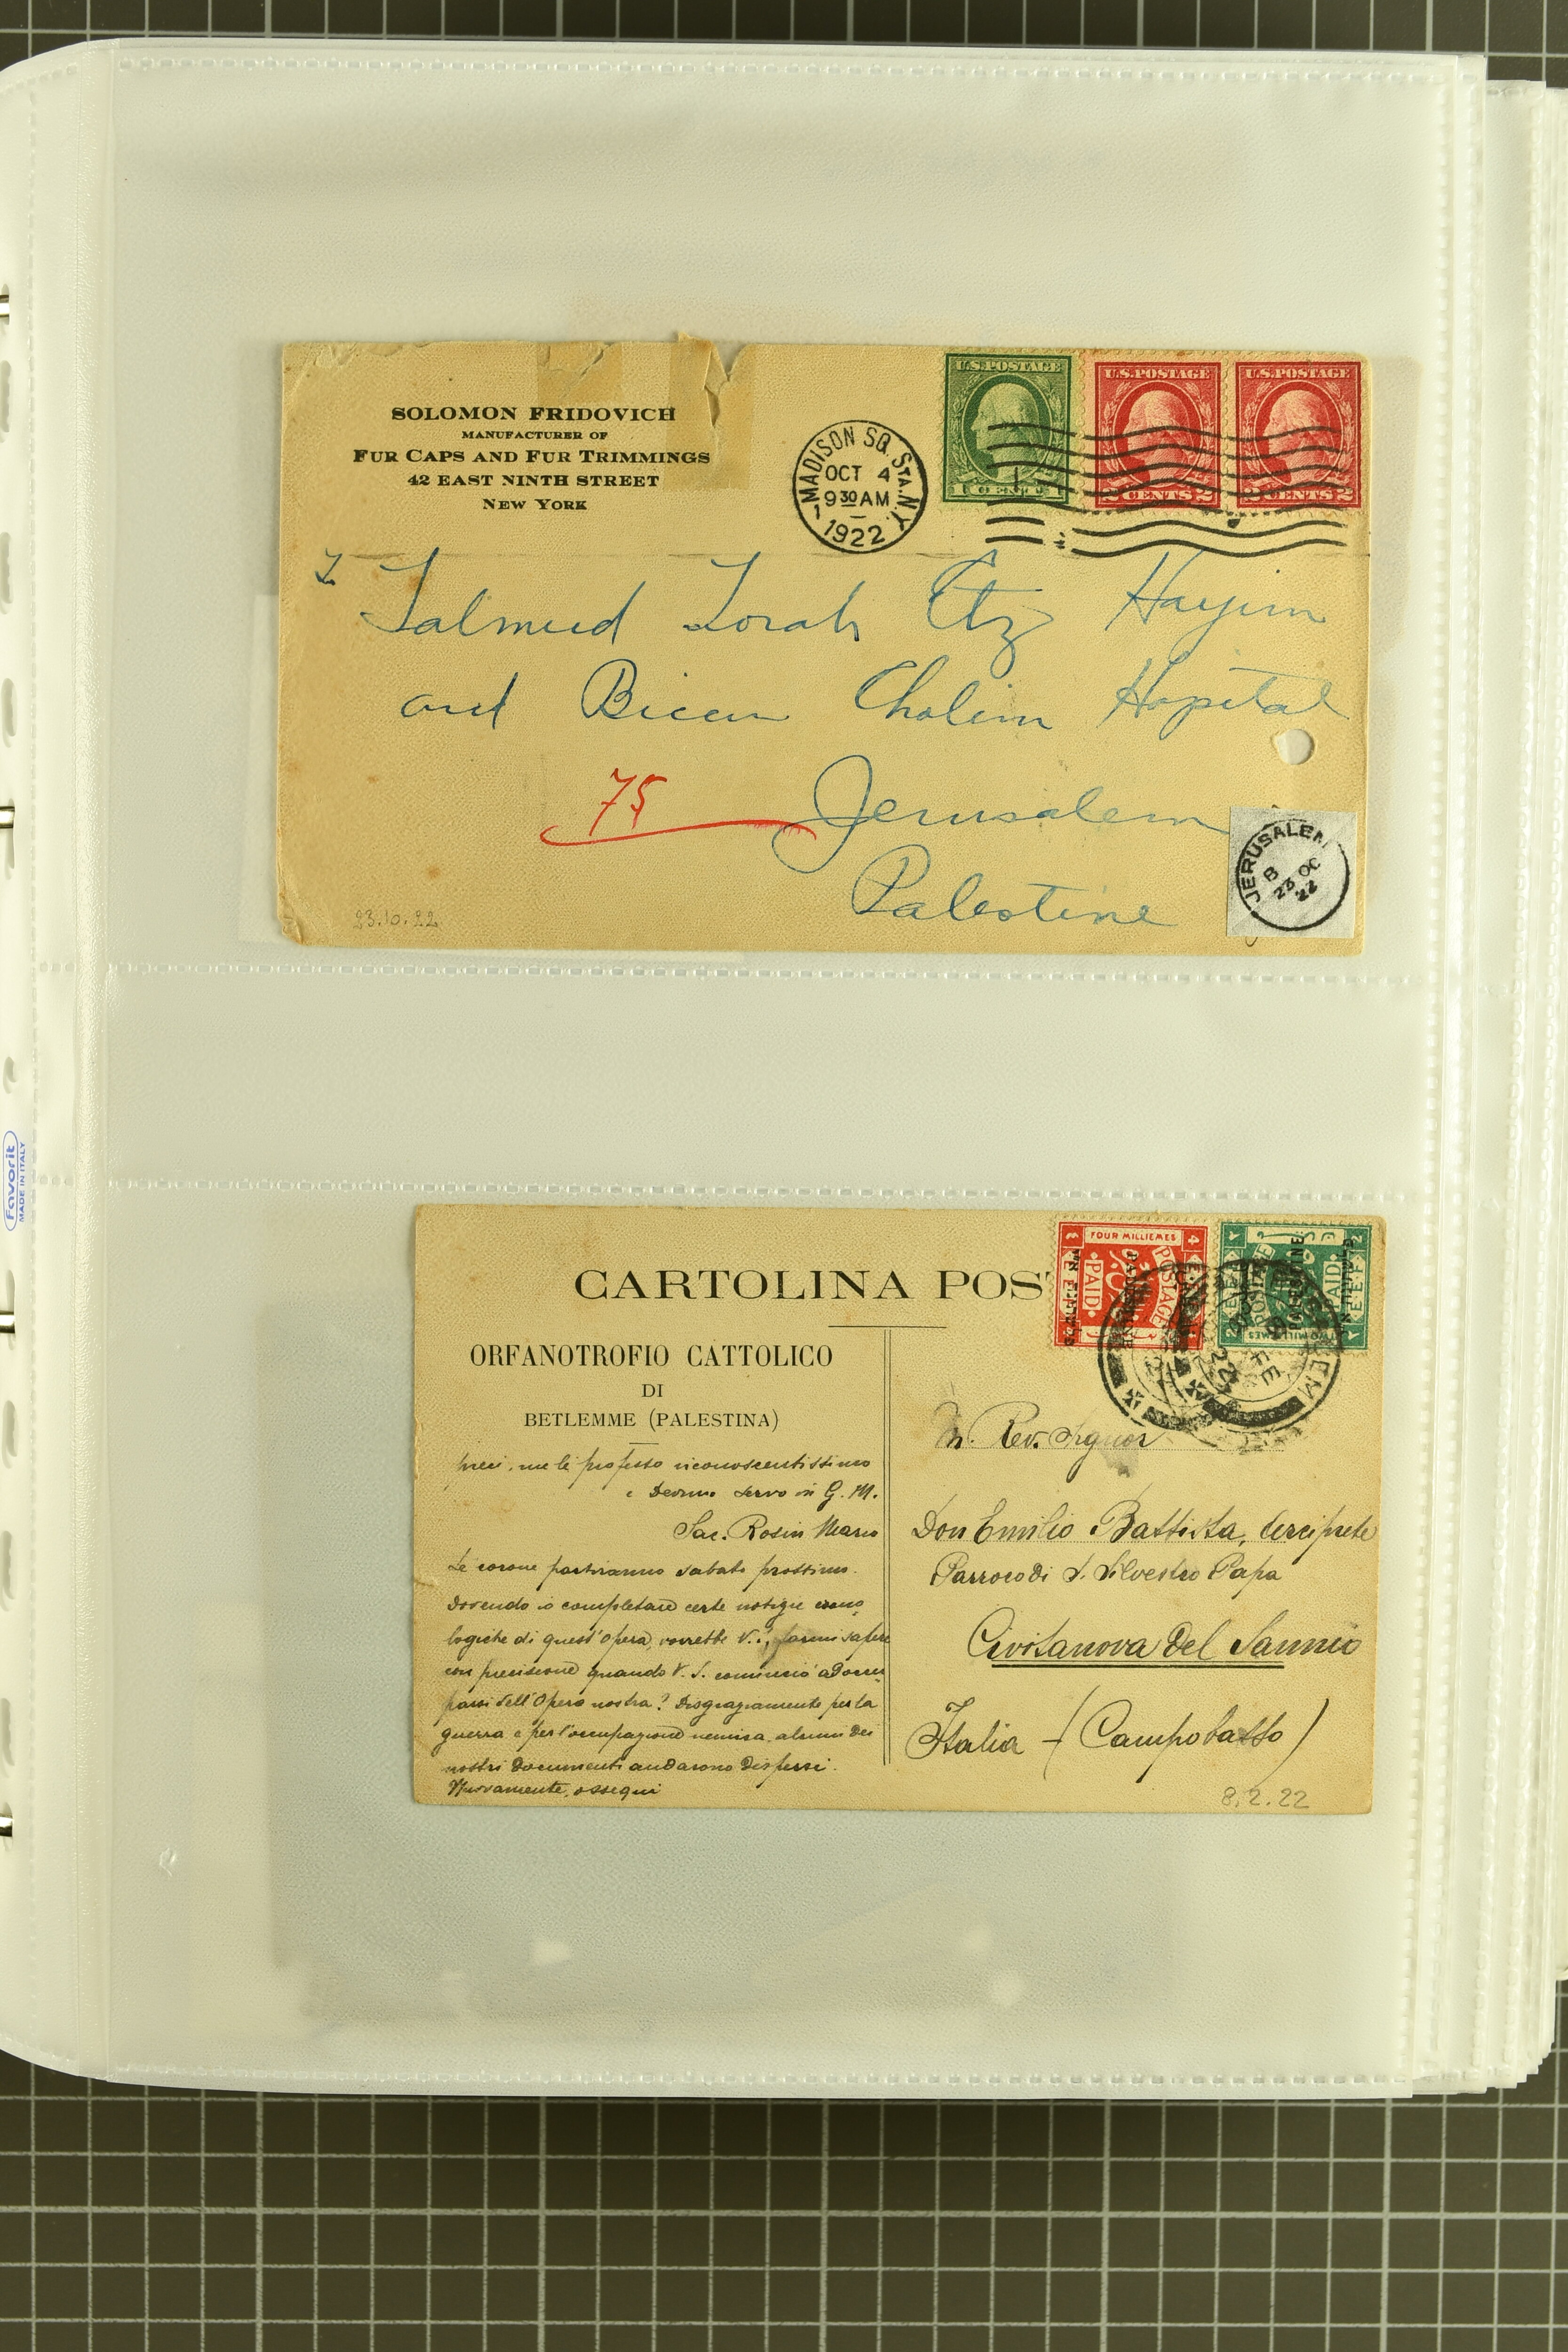 SOLOMON FRIDOVICH
MANUFACTURER OF
FUR CAPS AND FUR TRIMMINGS
42 EAST NINTH STREET
NEW YORK
MADISON SQ. STA. N.Y.
OCT 4
9 30 AM
1922
U.S. POSTAGE
U.S. POSTAGE
2 CENTS 2
U.S. POSTAGE
2 CENTS 2
Talmud Torah Etz Hayim
and Bicur Cholim Hospital
75
Jerusalem
Palestine
JERUSALEM
8
23 OC
22
23.10.22
CARTOLINA POS
FOUR MILLIEMES
POSTAGE
PAID
E.E.F.
PALESTINE
TWO MILLIEMES
PAID
E.E.F.
ORFANOTROFIO CATTOLICO
DI
BETLEMME (PALESTINA)
preci, me le professo riconoscentissimo
e Devmo servo in G. M.
Sac. Rosin Mario
Le corone partiranno sabato prossimo.
Dovendo io completare certe notizie crono
logiche di quest'Opera, vorrebbe V. farmi sapere
con precisione quando V. S. cominciò ad occu
parsi dell'Opera nostra? Disgraziamente per la
guerra e per l'occupazione nemica, alcuni dei
nostri documenti andarono dispersi.
Nuovamente, ossequi
M. Rev. Signor
Don Emilio Battista, Arciprete
Parroco di S. Silvestro Papa
Civitanova del Sannio
Italia - (Campobasso)
8.2.22
Favorit
MADE IN ITALY